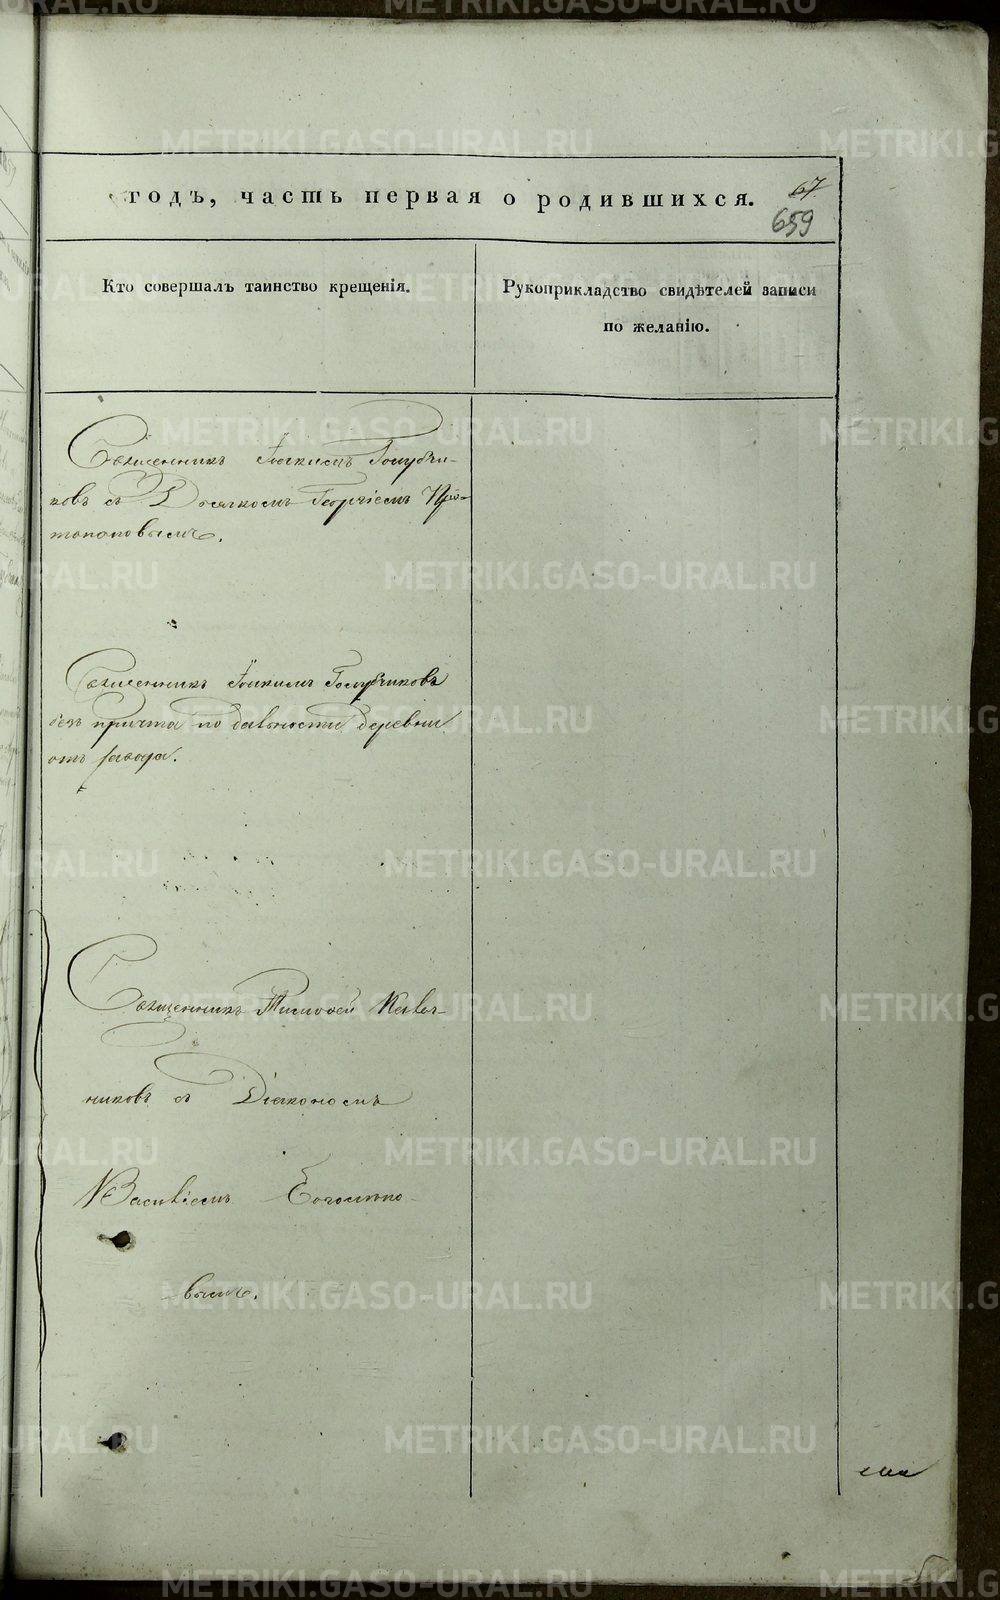 годъ, часть первая о родившихся.
67.
659
Кто совершалъ таинство крещенія.
Рукоприкладство свидѣтелей записи
по желанію.
Священникъ Іоакимъ Голубчи-
ковъ съ Дьячкомъ Георгіемъ Про-
топоповымъ.
Священникъ Іоакимъ Голубчиковъ
безъ причта по дальности деревни
отъ завода.
Священникъ Тимофей
никовъ съ Діакономъ
Василіемъ Боголѣпо-
вымъ.
METRIKI.GASO-URAL.RU